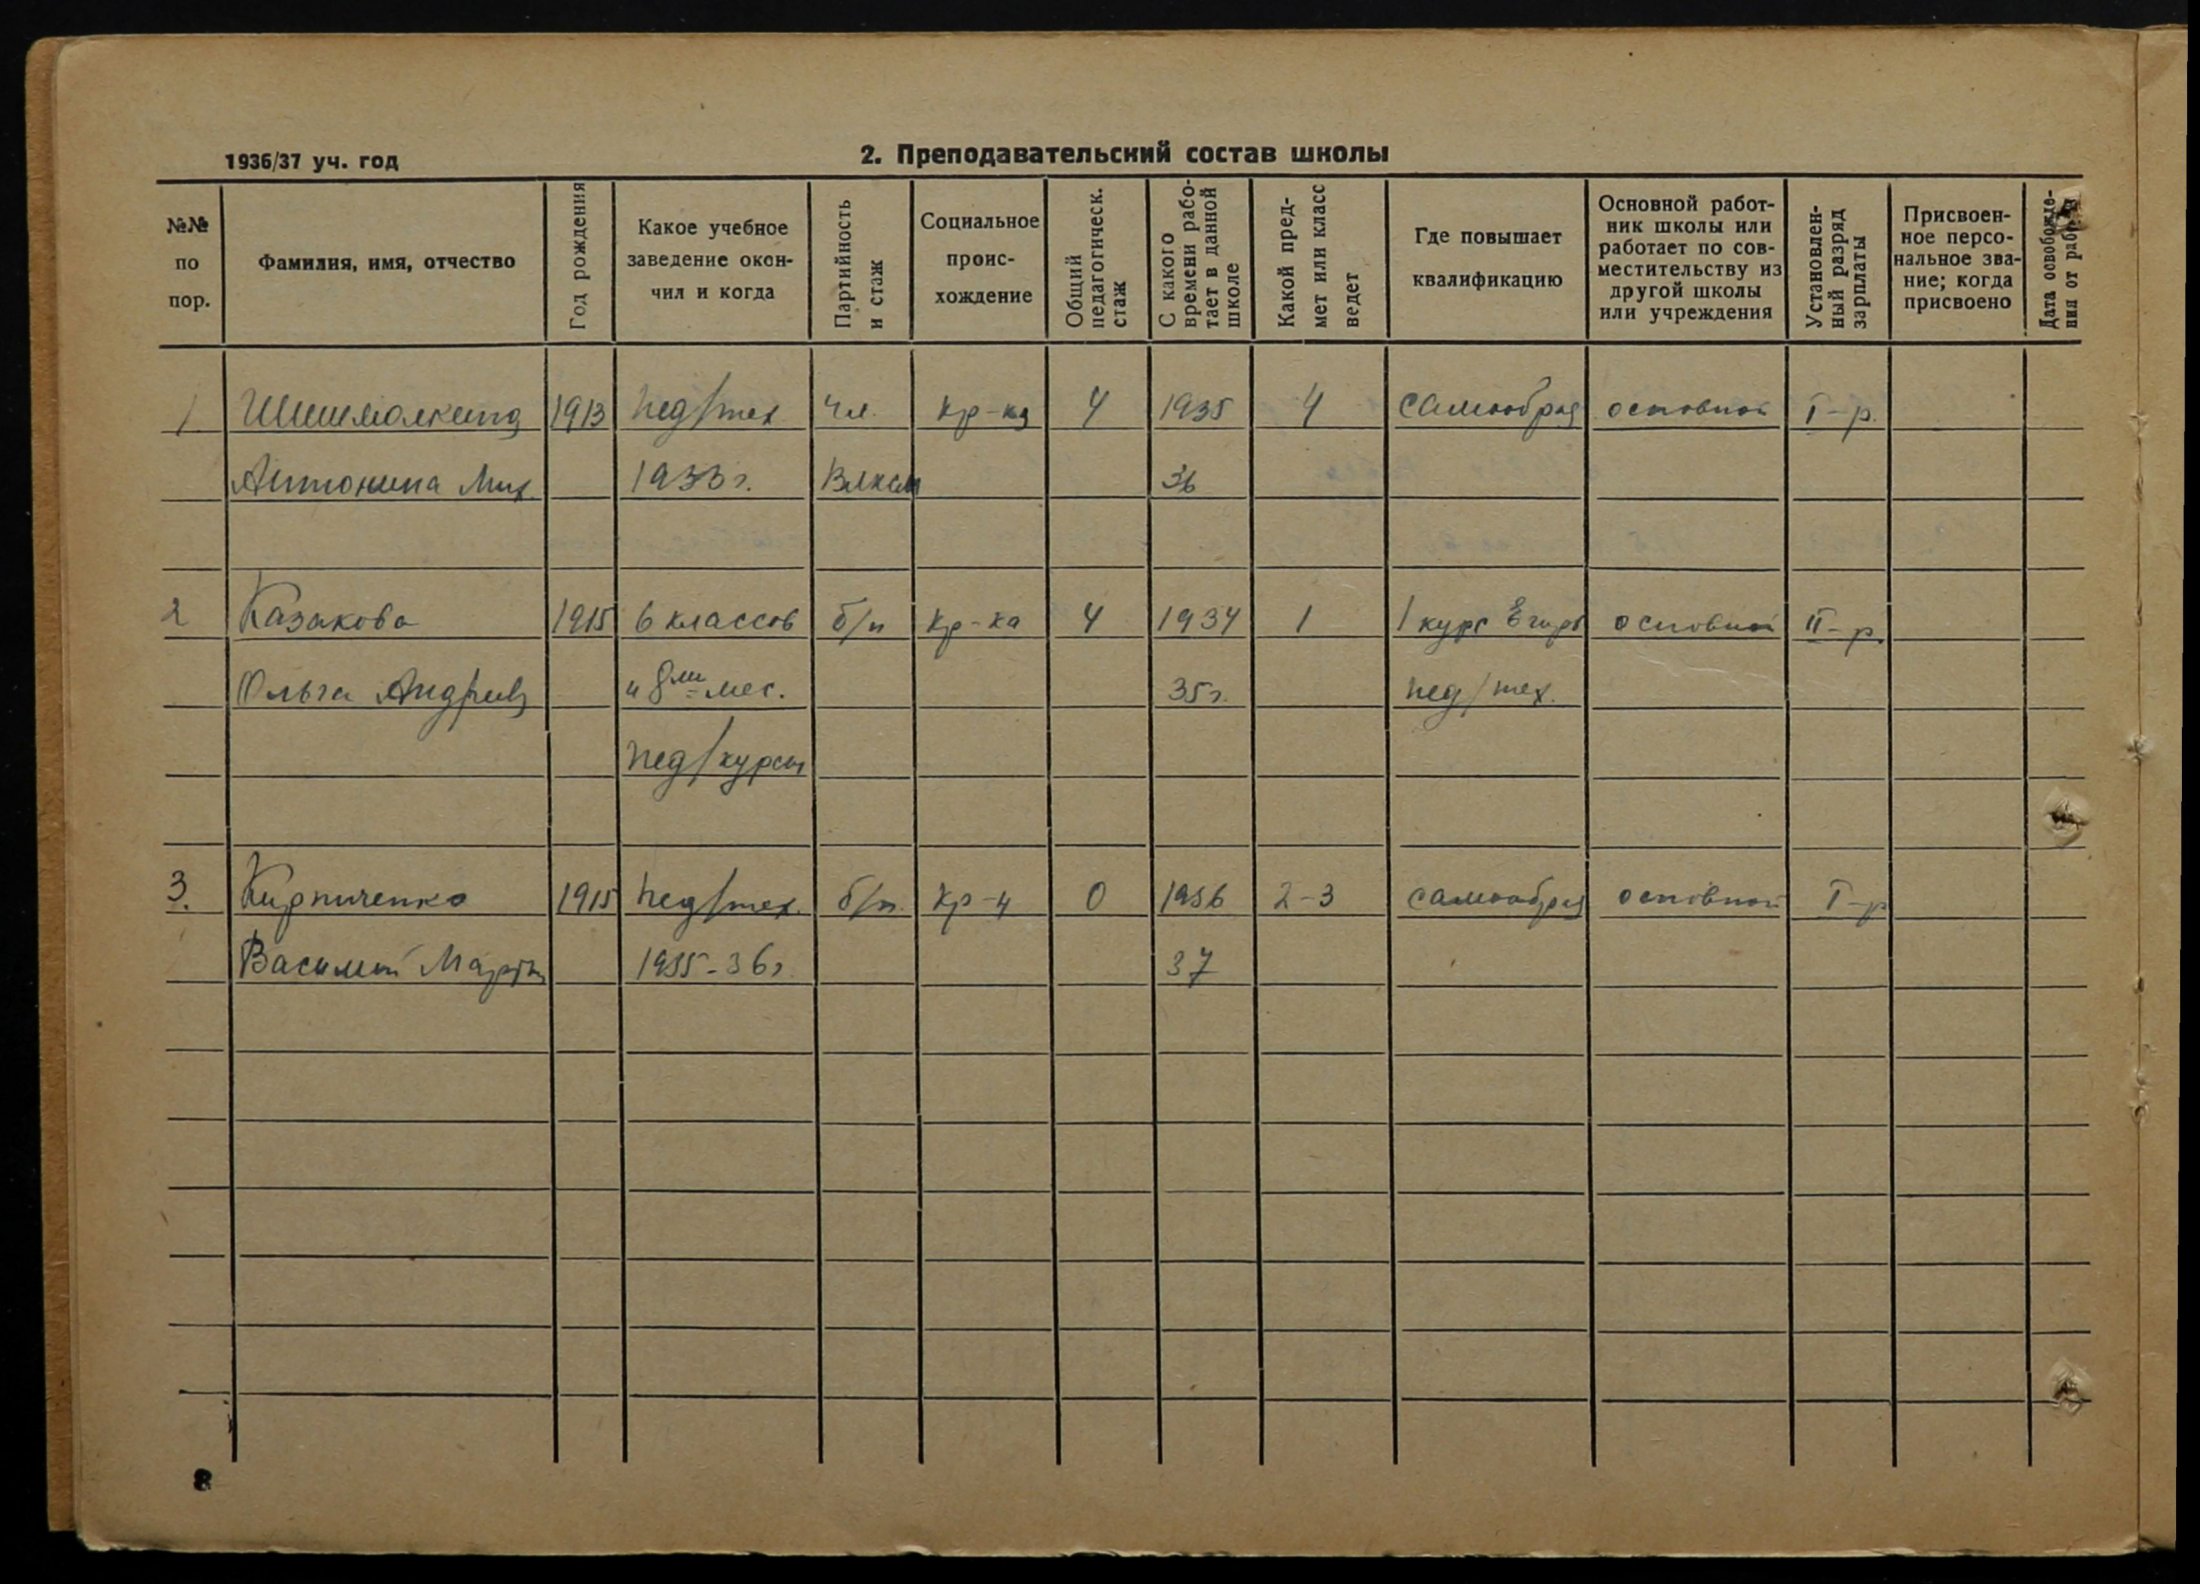 1936/37 уч. год
2. Преподавательский состав школы
№№ по пор.
Фамилия, имя, отчество
Год рождения
Какое учебное заведение окон-чил и когда
Партийность и стаж
Социальное проис-хождение
Общий педагогическ. стаж
С какого времени рабо-тает в данной школе
Какой пред-мет или класс ведет
Где повышает квалификацию
Основной работ-ник школы или работает по сов-местительству из другой школы или учреждения
Установлен-ный разряд зарплаты
Присвоен-ное персо-нальное зва-ние; когда присвоено
Дата освобожде-ния от работы
1 Шишмолкина 1913 пед/тех чл. кр-ка 4 1935 4 самообраз основной I-р.
Антонина Мих. 1933 г. Влксм 36
2 Казакова 1915 6 классов б/п кр-ка 4 1934 1 1 курс основной II-р.
Ольга Андреев и 8ми мес. 35 г. пед/тех.
пед/курсы
3. Кирпиченко 1915 пед/тех. б/п. кр-н 0 1936 2-3 самообраз основной I-р
Василий Март 1935-36 г. 37
8